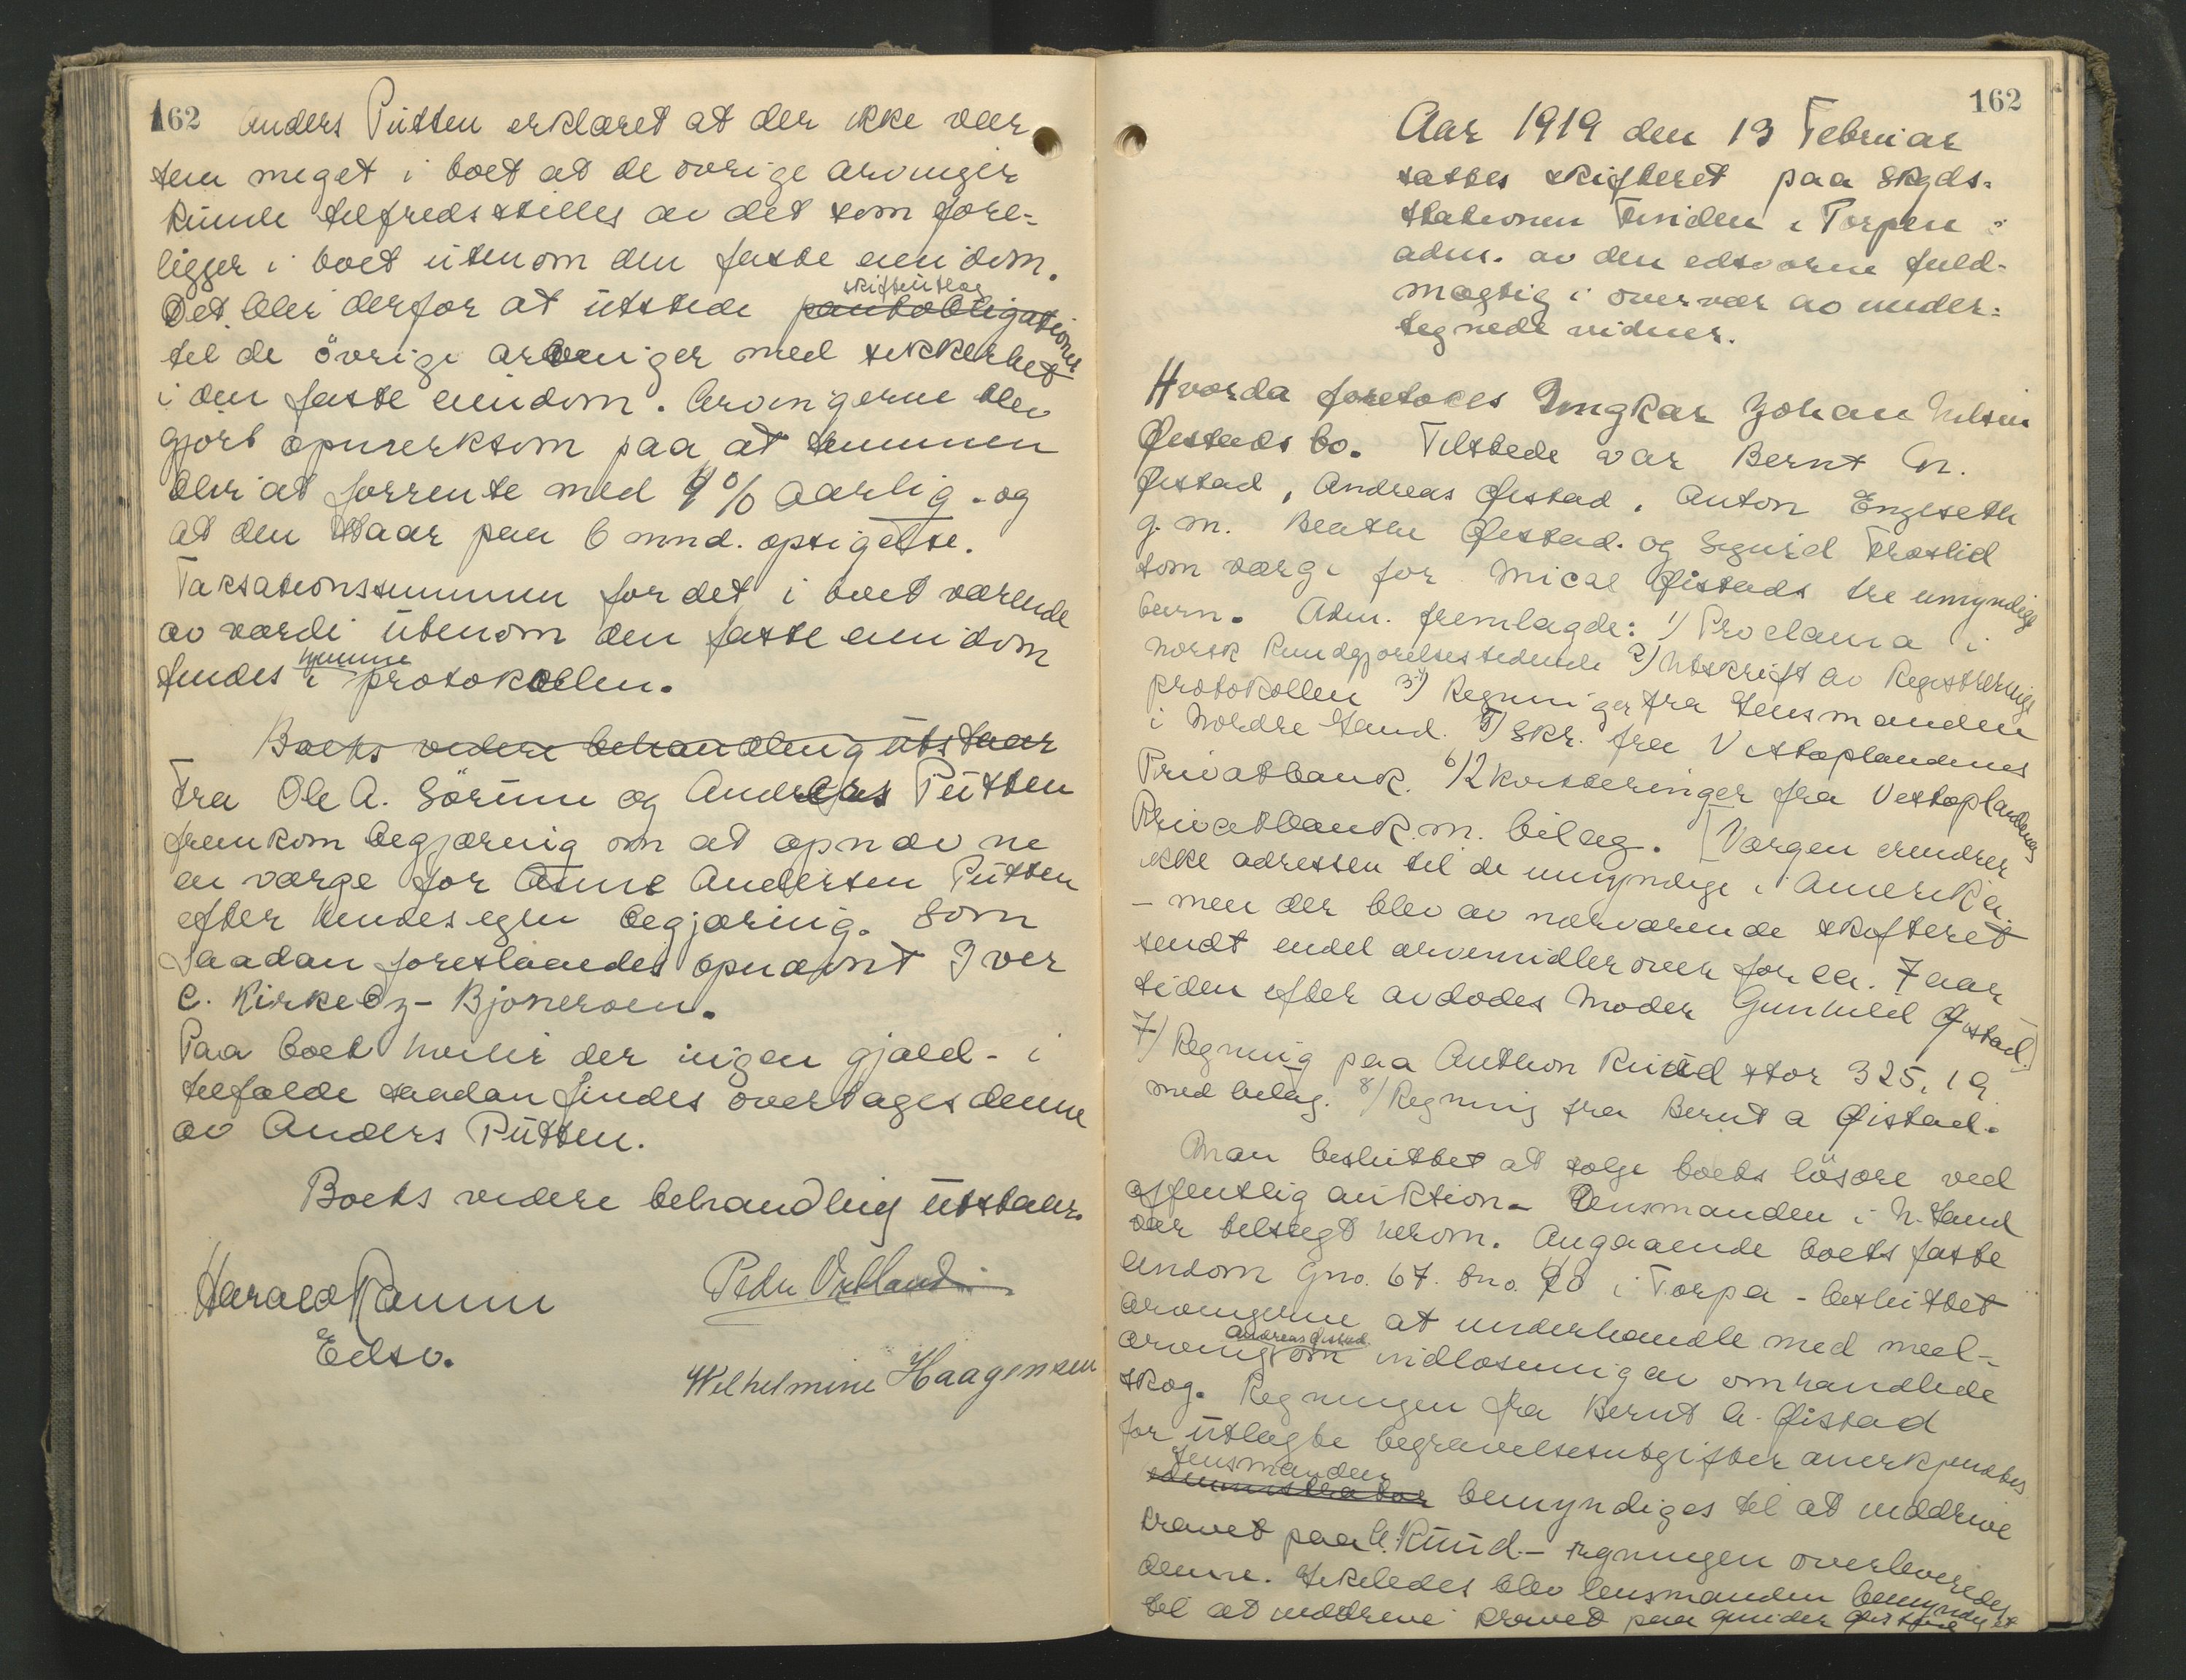 162
Anders Pütten erklæret at der ikke var
saa meget i boet at de øvrige arvinger
kunde tilfredsstilles av det som fore-
ligger i boet utenom den faste eiendom.
Det blir derfor at utstede pantobligationer
skifteutlæg
til de övrige arvinger med sikkerhet
i den faste eiendom. Arvingerne blev
gjort opmerksom paa at summen
blir at forrente med 4% aarlig - og
at den staar paa 6 mnd. opsigelse.
Taksationssummen for det i boet værende
av værdi utenom den faste eiendom
findes i protokollen.
Boets videre behandling utstaar
Fra Ole A. Sörum og Anders Pütten
fremkom begjæring om at opnævne
en værge for Andersen Pütten
efter hendes egen begjæring. Som
saadan foreslaaedes opnævnt Iver
C. Kirkeby - Bjoneroen.
Paa boet hviler der ingen gjæld - i
tilfælde saadan findes overtages denne
av Anders Pütten.
Boets videre behandling utstaar.
Harald Ramm
Edsv.
Peder
Wilhelmine Haagensen
162
Aar 1919 den 13 Februar
sattes skifteret paa Skyds-
stationen Finden i Torpen
adm. av den edsvorne fuld-
mægtig i overvær av under-
tegnede vidner.
Hvorda foretoces Ingkar Johan Nilsen
Øistads bo. Tilstede var Bernt An.
Øistad, Andreas Øistad, Anton Engeseth
g. m. Beathe Øistad. og Sigurd Frøslid
som værge for Mical Øistads tre umyndige
barn. Adm. fremlagde: 1) Proclama i
Norsk Kundgjørelsestidende 2) Utskrift av Registrerings
protokollen 3-4) Regninger fra Lensmanden
i Nordre Land. 5) Skr. fra Vestoplandenes
Privatbank. 6) 2 kvitteringer fra Vestoplandenes
Privatbank m. bilag. [Værgen erindrer
ikke adressen til de umyndige i Amerika
- men der blev av nærværende skifteret
sendt endel arvemidler over for ca. 7 aar
siden efter avdødes moder Gunhild Øistad.]
7) Regning paa Anthon Ruud stor 325,19
med bilag. 8) Regning fra Bernt A Øistad.
Man besluttet at sælge boets lösøre ved
offentlig auktion - Lensmanden i N. Land
var tilsagt herom. Angaaende boets faste
eiendom Gno. 67. bno. 28 i Torpa - besluttet
arvingerne at underhandle med med-
arving om indløsning av omhandlede
Andreas Øistad
skog. Regningen fra Bernt A. Øistad
for utlagte begravelsesutgifter anerkjendtes
Lensmanden
administrator bemyndiges til at inddrive
kravet paa A. Ruud. - regningen overleveredes
denne. Likeledes blev lensmanden bemyndiget
til at inddrive kravet paa